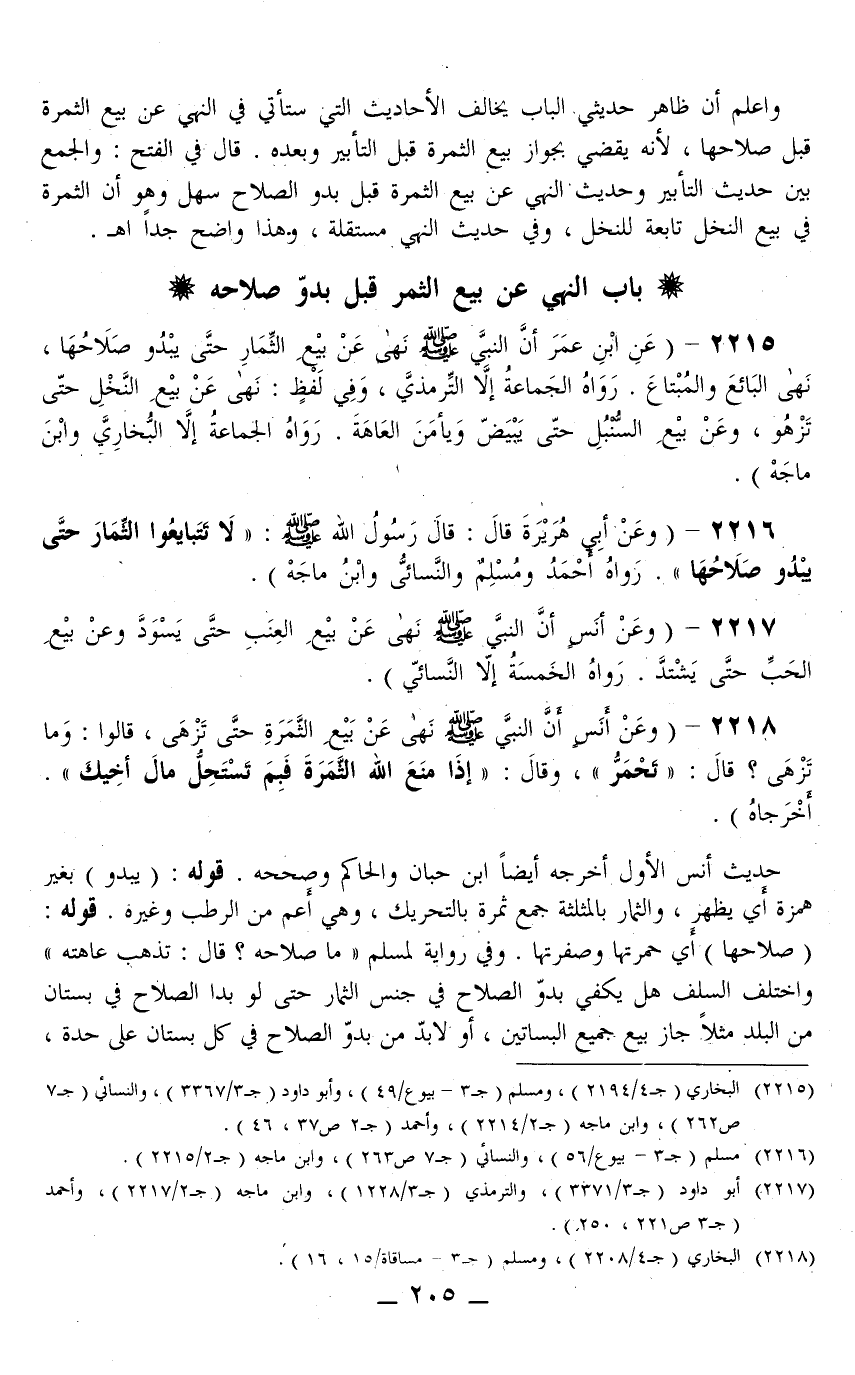 واعلم أن ظاهر حديثي الباب يخالف الأحاديث التي ستأتي في النهي عن بيع الثمرة
قبل صلاحها ، لأنه يقضي بجواز بيع الثمرة قبل التأبير وبعده . قال في الفتح : والجمع
بين حديث التأبير وحديث النهي عن بيع الثمرة قبل بدو الصلاح سهل وهو أن الثمرة
في بيع النخل تابعة للنخل ، وفي حديث النهي مستقلة ، وهذا واضح جداً اهـ .
✷ باب النهي عن بيع الثمر قبل بدوّ صلاحه ✷
٢٢١٥ – ( عَنِ ابْنِ عمَرَ أنَّ النبيَّ ﷺ نَهىٰ عَنْ بيْعِ الثِّمَارِ حتَّى يبْدُو صَلَاحُهَا ،
نَهىٰ البَائعَ والمُبْتاعَ . رَوَاهُ الجَماعةُ إلَّا التِّرمذيَّ ، وَفِي لَفْظٍ : نَهىٰ عَنْ بيْعِ النَّخْلِ حتّى
تَزْهُو ، وعَنْ بيْعِ السُّنْبُلِ حتّى يَبْيَضّ وَيأمَنَ العَاهَةَ . رَوَاهُ الجماعةُ إلَّا البُّخاريَّ وابْنَ
ماجَهْ ) .
٢٢١٦ – ( وعَنْ أبي هُرَيْرَةَ قالَ : قالَ رَسُولُ الله ﷺ : « لَا تَتَبايعُوا الثِّمَارَ حتَّى
يبْدُو صَلَاحُهَا » . رَواهُ أَحْمَدُ ومُسْلِمٌ والنَّسائىُّ وابْنُ ماجَهْ ) .
٢٢١٧ – ( وعَنْ أنَسٍ أنَّ النبيَّ ﷺ نَهىٰ عَنْ بيْعِ العِنَبِ حتَّى يَسْوَدَّ وعنْ بيْعِ
الحَبِّ حتَّى يَشْتدَّ . رَواهُ الخَمسَةُ إلّا النَّسائيّ ) .
٢٢١٨ – ( وعَنْ أَنَسٍ أَنَّ النبيَّ ﷺ نَهىٰ عَنْ بَيْعِ الثَّمَرَةِ حتَّى تَزْهَى ، قالوا : وَما
تَزْهَى ؟ قالَ : « تَحْمَرُّ » ، وقالَ : « إذَا منَعَ الله الثَّمَرَةَ فَبِمَ تَسْتَحِلُّ مالَ أخِيكَ » .
أَخْرَجاهُ ) .
حديث أنس الأول أخرجه أيضاً ابن حبان والحاكم وصححه . قوله : ( يبدو ) بغير
همزة أي يظهر ، والثمار بالمثلثة جمع ثمرة بالتحريك ، وهي أعم من الرطب وغيره . قوله :
( صلاحها ) أي حمرتها وصفرتها . وفي رواية لمسلم « ما صلاحه ؟ قال : تذهب عاهته »
واختلف السلف هل يكفي بدوّ الصلاح في جنس الثمار حتى لو بدا الصلاح في بستان
من البلد مثلاً جاز بيع جميع البساتين ، أو لابدّ من بدوّ الصلاح في كل بستان على حدة ،
(٢٢١٥) البخاري ( جـ٢١٩٤/٤ ) ، ومسلم ( جـ٣ – بيوع/٤٩ ) ، وأبو داود ( جـ٣٣٦٧/٣ ) ، والنسائي ( جـ٧
ص٢٦٢ ) ، وابن ماجه ( جـ٢٢١٤/٢ ) ، وأحمد ( جـ٢ ص٣٧ ، ٤٦ ) .
(٢٢١٦) مسلم ( جـ٣ – بيوع/٥٦ ) ، والنسائي ( جـ٧ ص٢٦٣ ) ، وابن ماجه ( جـ٢٢١٥/٢ ) .
(٢٢١٧) أبو داود ( جـ٣٣٧١/٣ ) ، والترمذي ( جـ١٢٢٨/٣ ) ، وابن ماجه ( جـ٢٢١٧/٢ ) ، وأحمد
( جـ٣ ص٢٢١ ، ٢٥٠ ) .
(٢٢١٨) البخاري ( جـ٢٢٠٨/٤ ) ، ومسلم ( جـ٣ – مساقاة/١٥ ، ١٦ ) .
– ٢٠٥ –